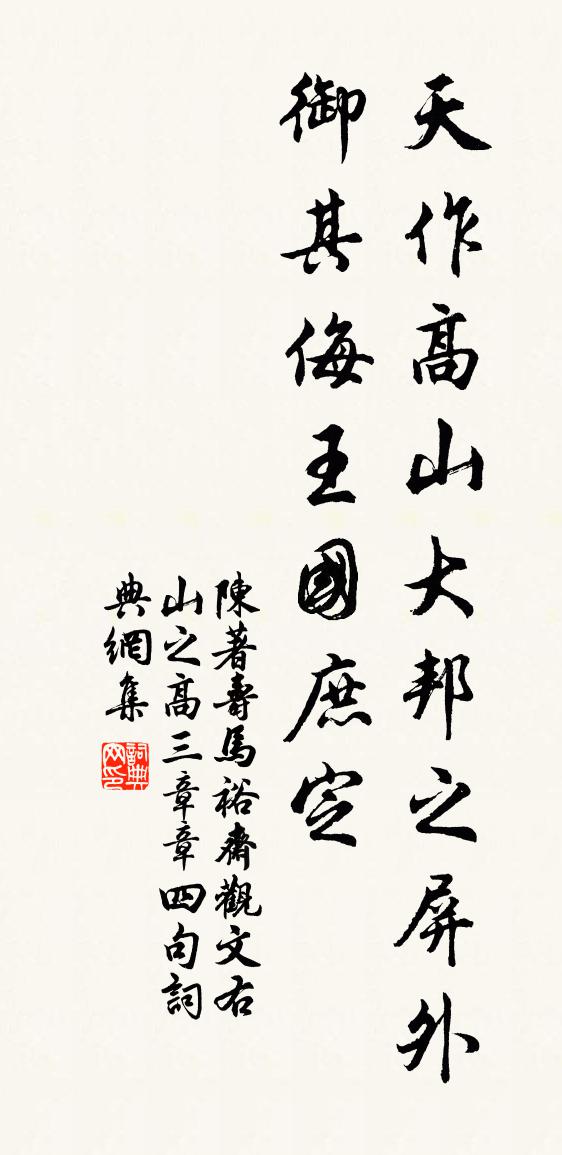 天作高山大邦之屏外
御其侮王國庶定
陳著壽馬裕齋觀文右
山之高三章章四句詞
典網集
詞典網印